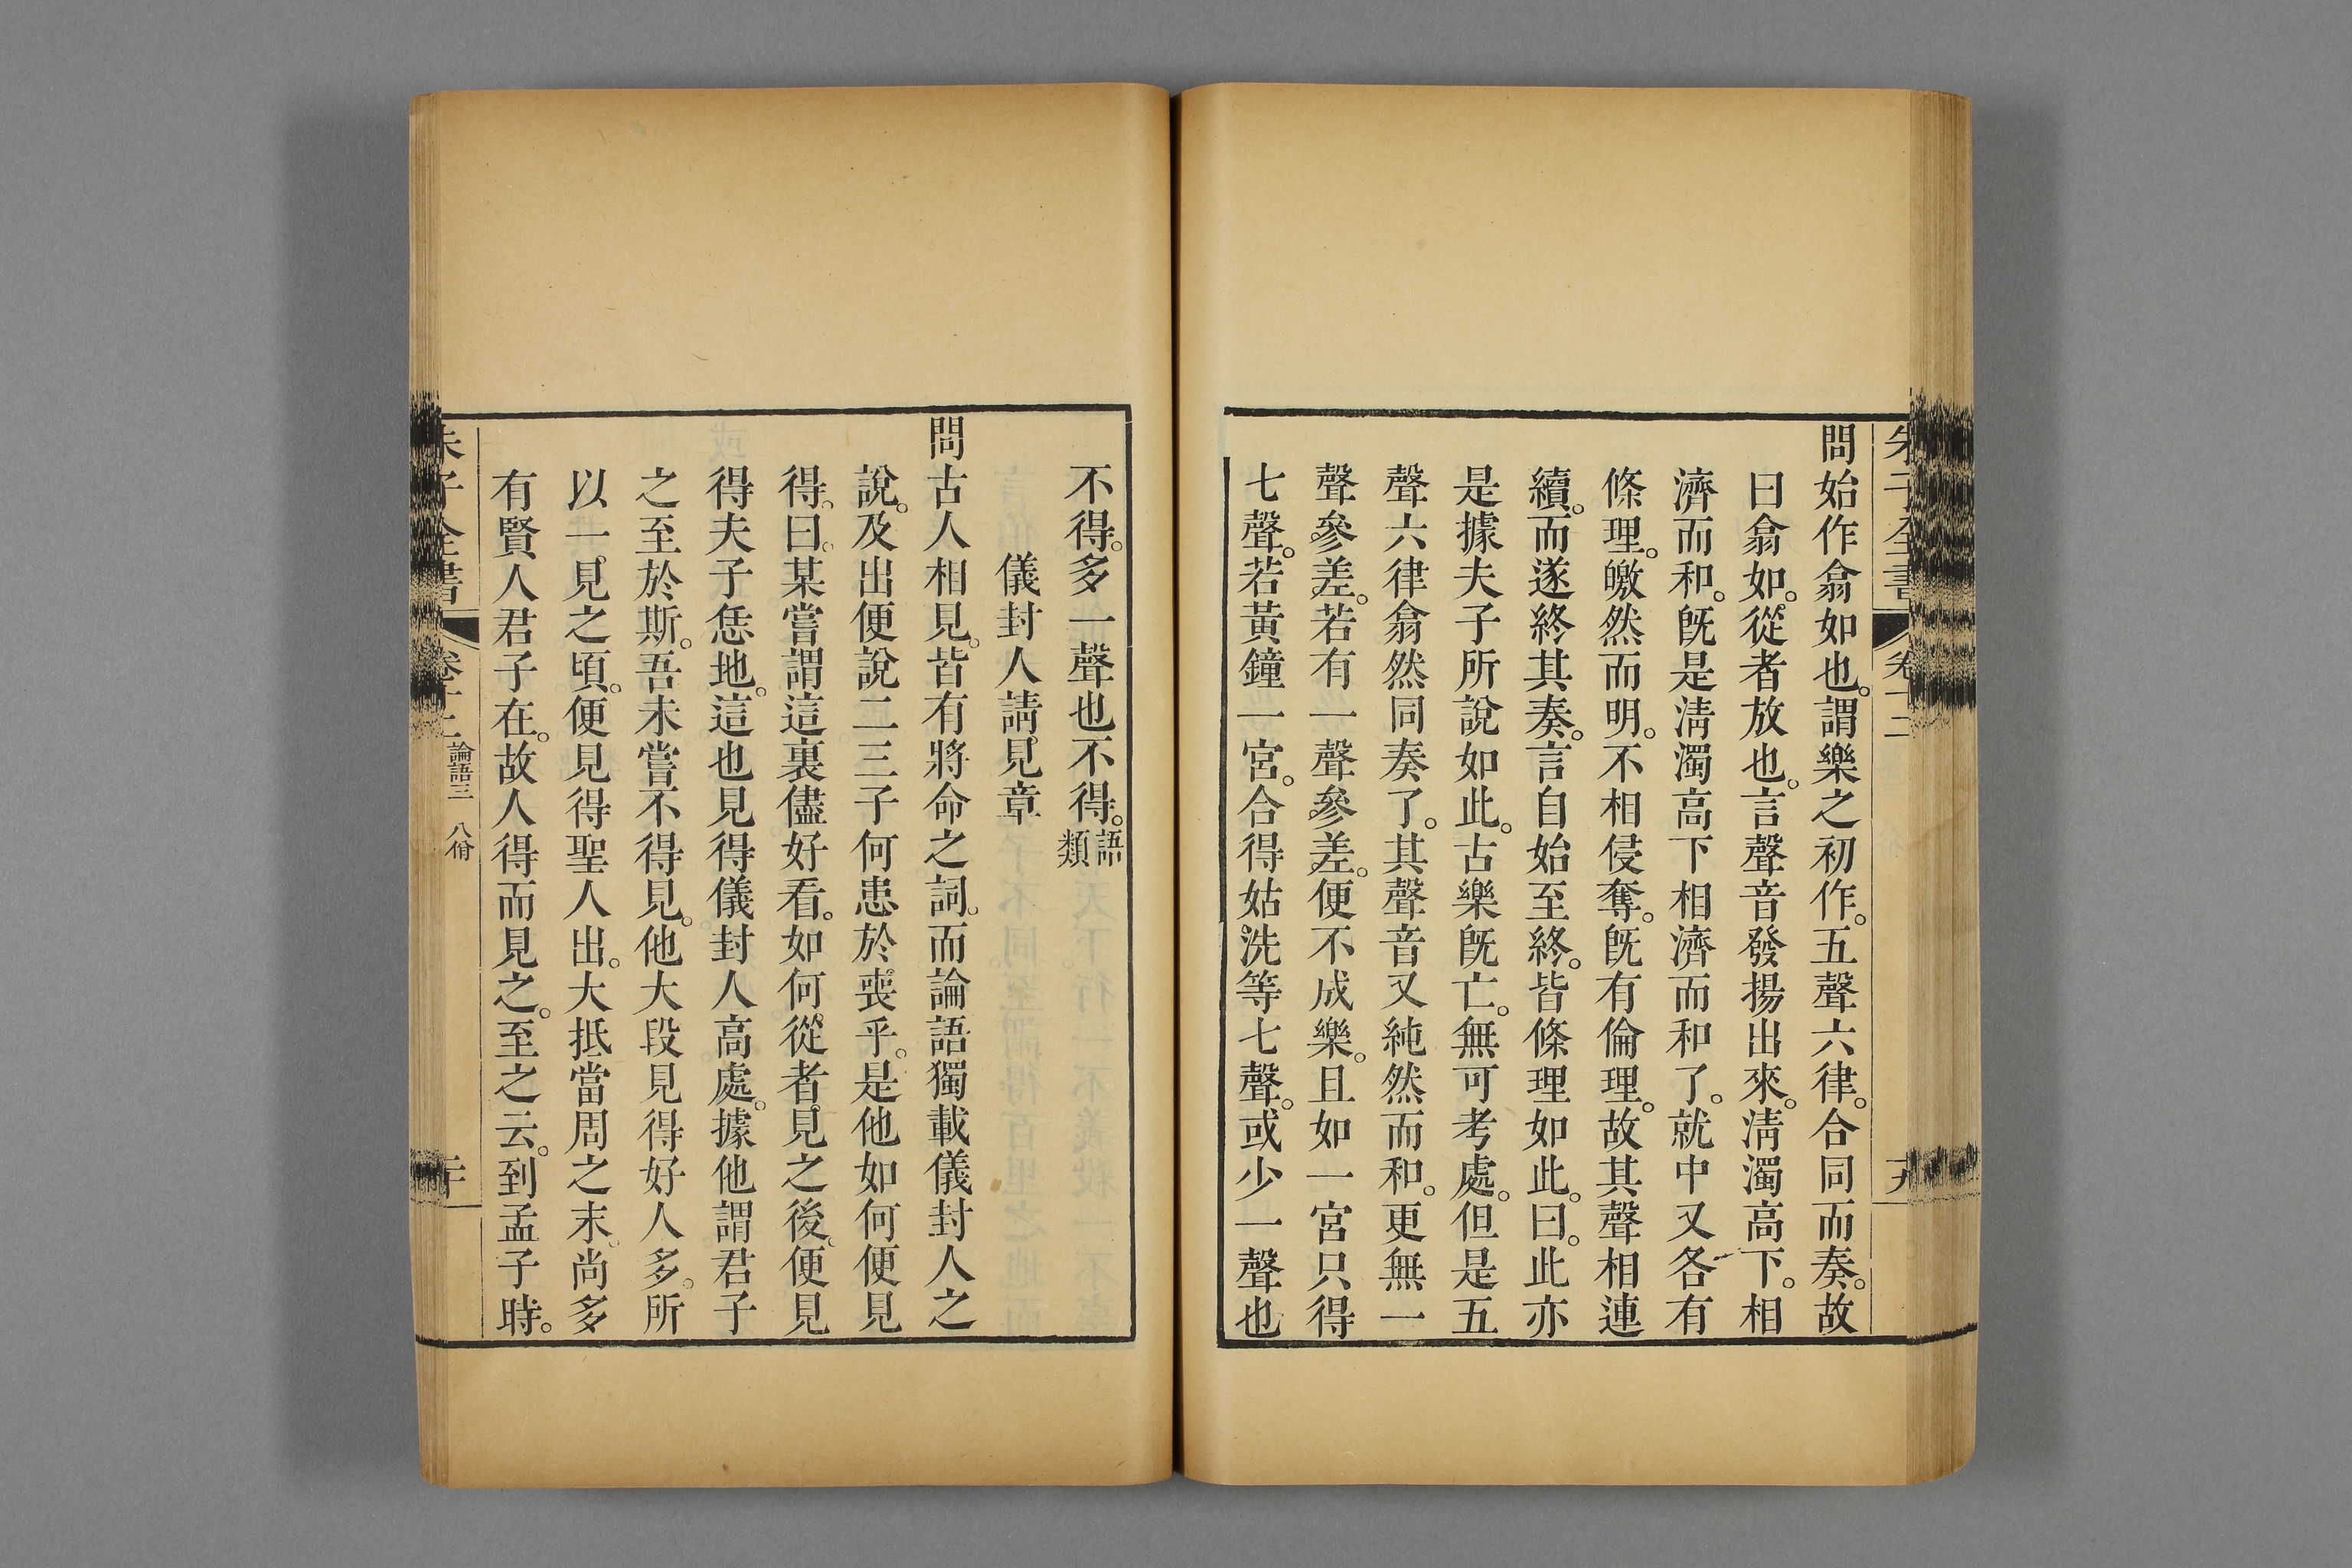 問始作翕如也。謂樂之初作。五聲六律。合同而奏。故
曰翕如。從者放也。言聲音發揚出來。淸濁高下。相
濟而和。旣是淸濁高下相濟而和了。就中又各有
條理。皦然而明。不相侵奪。旣有倫理。故其聲相連
續。而遂終其奏。言自始至終。皆條理如此。曰。此亦
是據夫子所說如此。古樂旣亡。無可考處。但是五
聲六律翕然同奏了。其聲音又純然而和。更無一
聲參差。若有一聲參差。便不成樂。且如一宮只得
七聲。若黃鐘一宮。合得姑洗等七聲。或少一聲也
不得。多一聲也不得。語類
儀封人請見章
問古人相見。皆有將命之詞。而論語獨載儀封人之
說。及出便說二三子何患於喪乎。是他如何便見
得。曰。某嘗謂這裏儘好看。如何從者見之後。便見
得夫子恁地。這也見得儀封人高處。據他謂君子
之至於斯。吾未嘗不得見。他大段見得好人多。所
以一見之頃。便見得聖人出。大抵當周之末。尚多
有賢人君子在。故人得而見之。至之云。到孟子時。
論語三 八佾